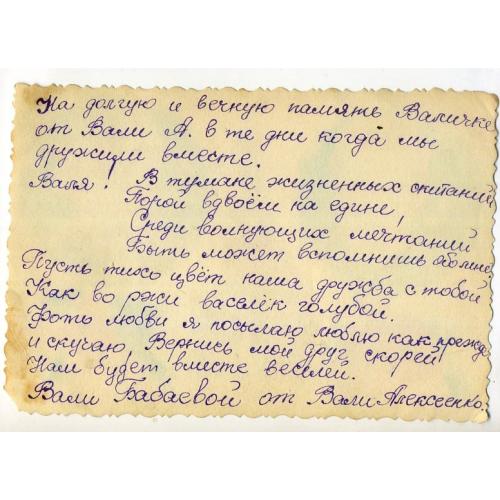 На долгую и вечную память Валичке
от Вали А. в те дни когда мы
дружили вместе.
Валя! В тумане жизненных скитаний
Порой вдвоём на едине,
Среди волнующих мечтаний
Быть может вспомнишь обо мне
Пусть тихо цвёт наша дружба с тобой
Как во ржи васелёк голубой.
Фоть любви я посылаю люблю как прежде
и скучаю, Вернись мой друг скорей
Нам будет вместе веселей.
Вали Бабаевой от Вали Алексеенко.